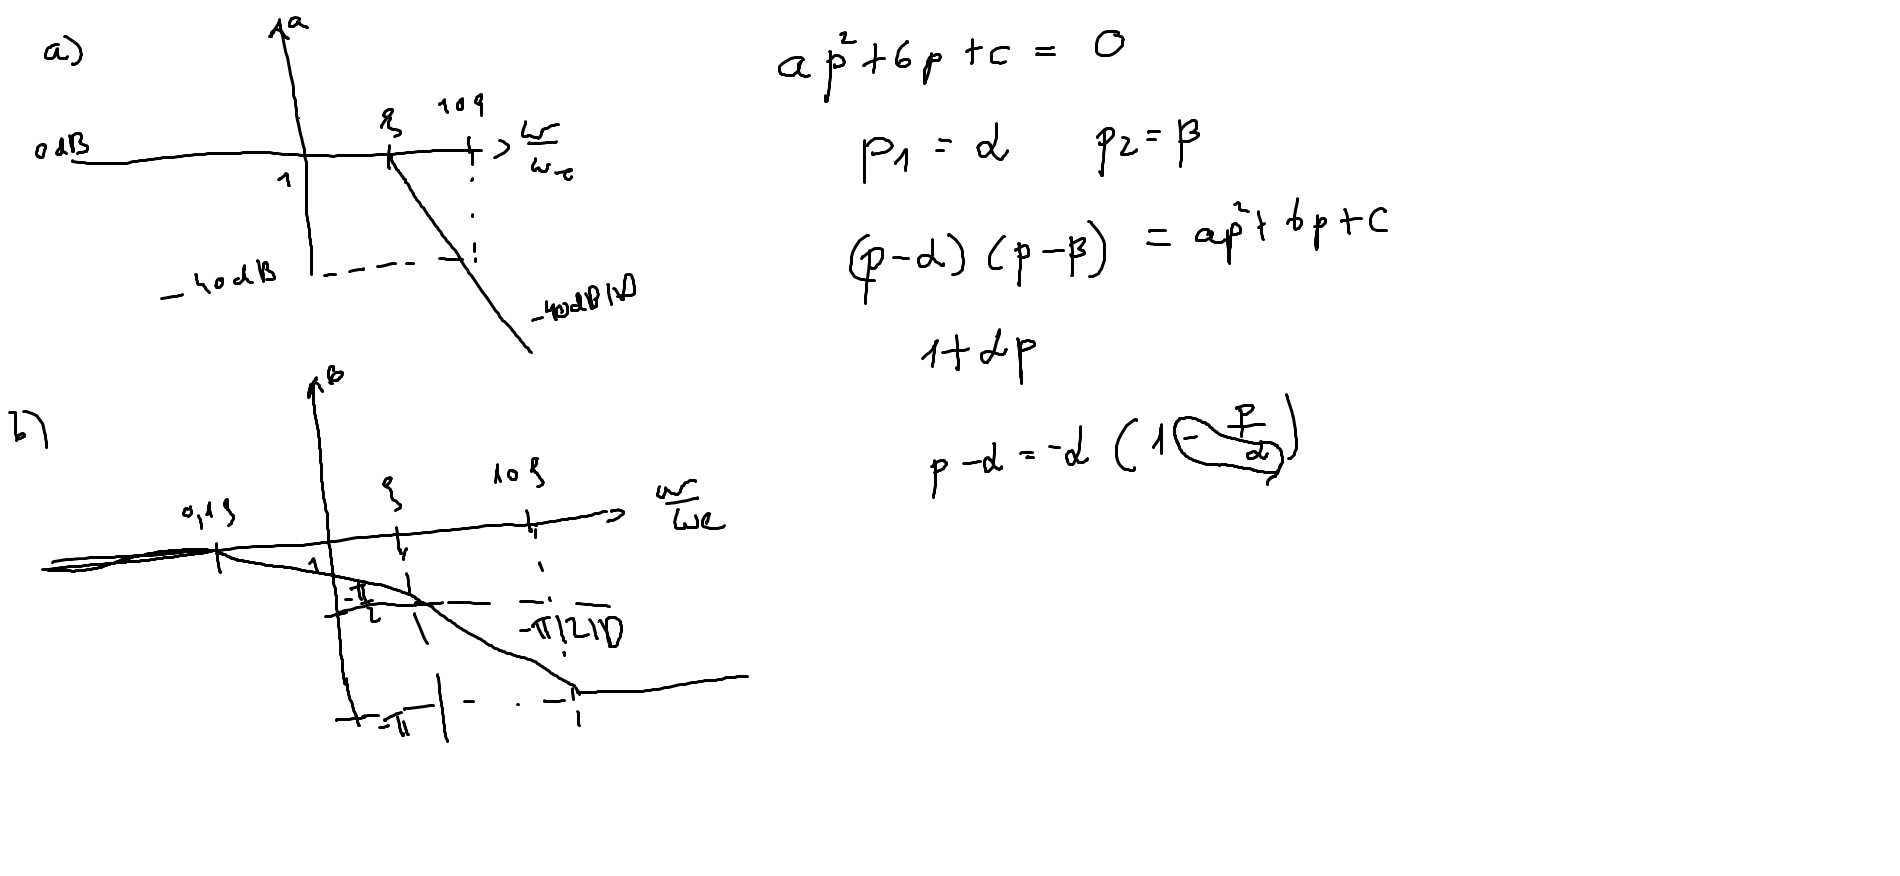 a)
a
0dB
ξ
10ξ
ω/ωc
1
-40dB
-40dB/D
b)
B
0,1ξ
ξ
10ξ
ω/ωc
1
-π/2
-π/2/D
-π
ap²+bp+c = 0
p1 = α p2 = β
(p-α) (p-β) = ap²+bp+c
1+αp
p-α = -α (1 - p/α)